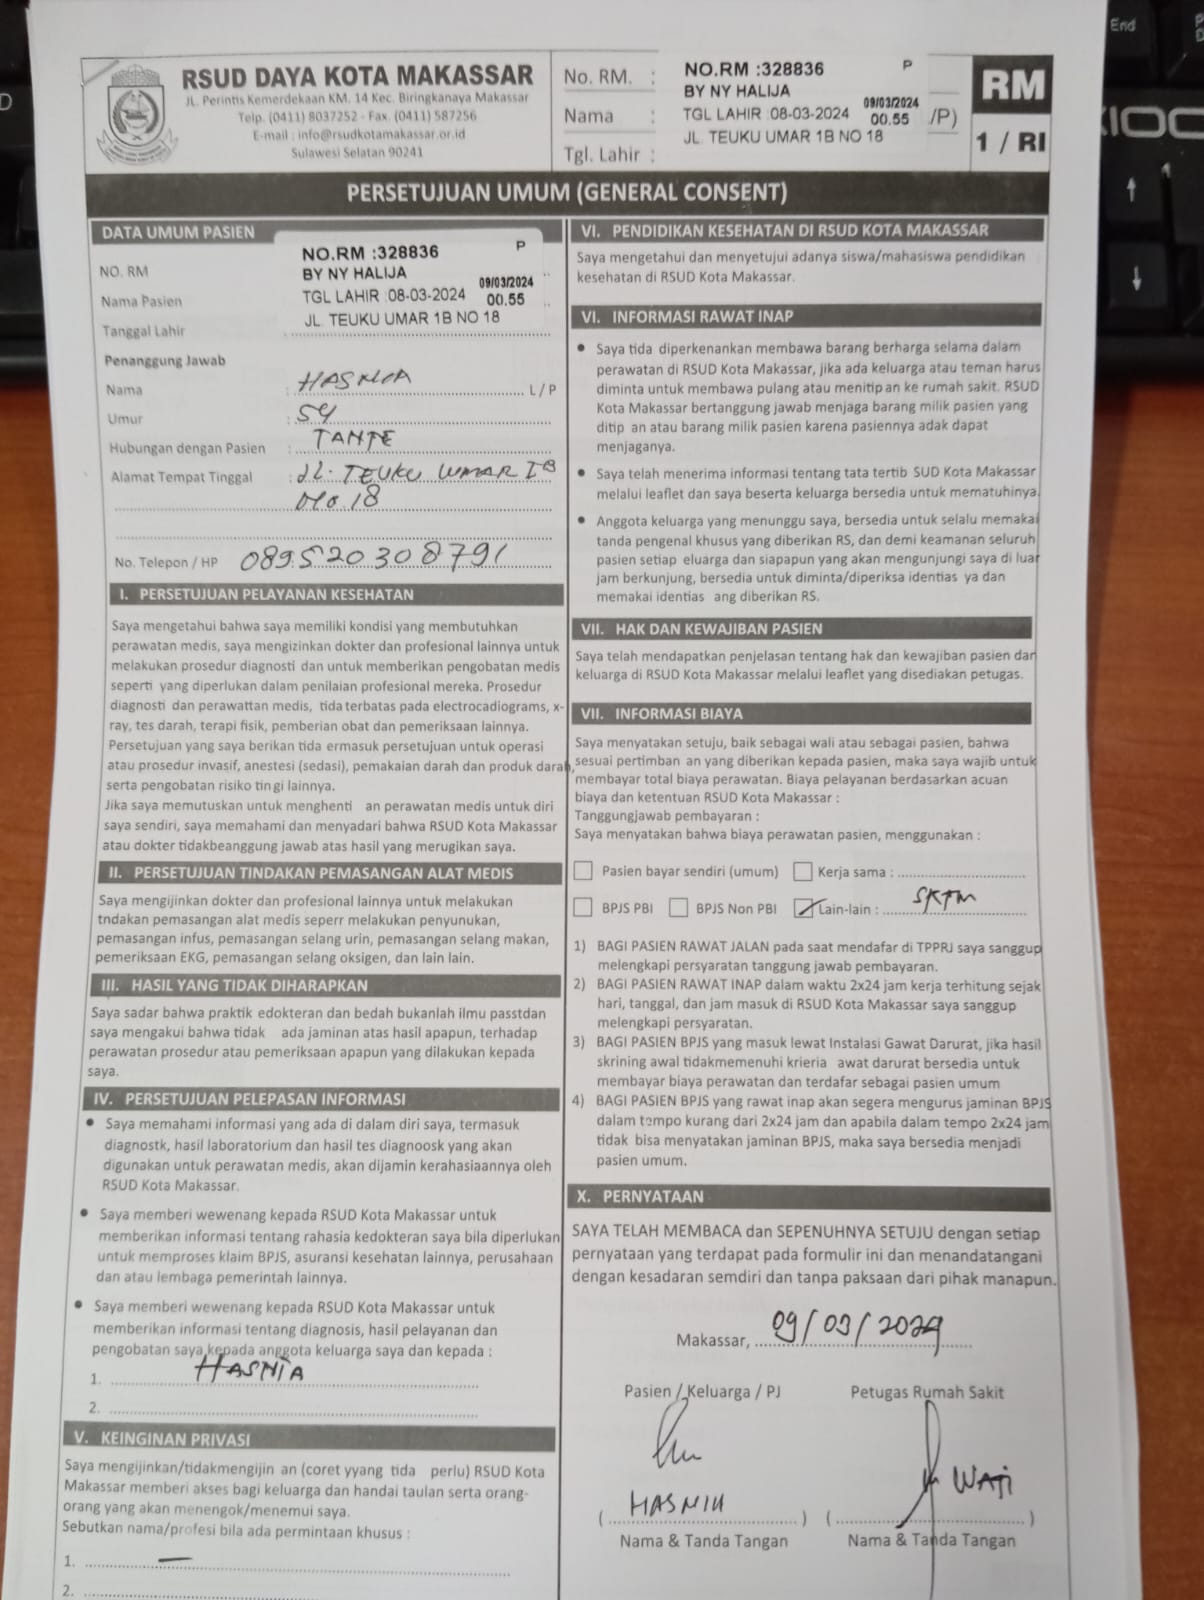 RSUD DAYA KOTA MAKASSAR
JL. Perintis Kemerdekaan KM. 14 Kec. Biringkanaya Makassar
Telp. (0411) 8037252 - Fax. (0411) 587256
E-mail : info@rsudkotamakassar.or.id
Sulawesi Selatan 90241
No. RM. :
Nama :
Tgl. Lahir :
NO.RM :328836 P
BY NY HALIJA
TGL LAHIR :08-03-2024 09/03/2024 00.55
JL. TEUKU UMAR 1B NO 18
/P)
RM
1 / RI
PERSETUJUAN UMUM (GENERAL CONSENT)
DATA UMUM PASIEN
NO. RM
Nama Pasien
Tanggal Lahir
NO.RM :328836 P
BY NY HALIJA
TGL LAHIR :08-03-2024 09/03/2024 00.55
JL. TEUKU UMAR 1B NO 18
Penanggung Jawab
Nama : HASNIA L / P
Umur : 54
Hubungan dengan Pasien : TANTE
Alamat Tempat Tinggal : JL. TEUKU UMAR I B
No. 18
No. Telepon / HP 089520308791
I. PERSETUJUAN PELAYANAN KESEHATAN
Saya mengetahui bahwa saya memiliki kondisi yang membutuhkan
perawatan medis, saya mengizinkan dokter dan profesional lainnya untuk
melakukan prosedur diagnosti dan untuk memberikan pengobatan medis
seperti yang diperlukan dalam penilaian profesional mereka. Prosedur
diagnosti dan perawattan medis, tida terbatas pada electrocadiograms, x-
ray, tes darah, terapi fisik, pemberian obat dan pemeriksaan lainnya.
Persetujuan yang saya berikan tida ermasuk persetujuan untuk operasi
atau prosedur invasif, anestesi (sedasi), pemakaian darah dan produk darah,
serta pengobatan risiko tin gi lainnya.
Jika saya memutuskan untuk menghenti an perawatan medis untuk diri
saya sendiri, saya memahami dan menyadari bahwa RSUD Kota Makassar
atau dokter tidakbeanggung jawab atas hasil yang merugikan saya.
II. PERSETUJUAN TINDAKAN PEMASANGAN ALAT MEDIS
Saya mengijinkan dokter dan profesional lainnya untuk melakukan
tndakan pemasangan alat medis seperr melakukan penyunukan,
pemasangan infus, pemasangan selang urin, pemasangan selang makan,
pemeriksaan EKG, pemasangan selang oksigen, dan lain lain.
III. HASIL YANG TIDAK DIHARAPKAN
Saya sadar bahwa praktik edokteran dan bedah bukanlah ilmu passtdan
saya mengakui bahwa tidak ada jaminan atas hasil apapun, terhadap
perawatan prosedur atau pemeriksaan apapun yang dilakukan kepada
saya.
IV. PERSETUJUAN PELEPASAN INFORMASI
• Saya memahami informasi yang ada di dalam diri saya, termasuk
diagnostk, hasil laboratorium dan hasil tes diagnoosk yang akan
digunakan untuk perawatan medis, akan dijamin kerahasiaannya oleh
RSUD Kota Makassar.
• Saya memberi wewenang kepada RSUD Kota Makassar untuk
memberikan informasi tentang rahasia kedokteran saya bila diperlukan
untuk memproses klaim BPJS, asuransi kesehatan lainnya, perusahaan
dan atau lembaga pemerintah lainnya.
• Saya memberi wewenang kepada RSUD Kota Makassar untuk
memberikan informasi tentang diagnosis, hasil pelayanan dan
pengobatan saya kepada anggota keluarga saya dan kepada :
1. HASNIA
2.
V. KEINGINAN PRIVASI
Saya mengijinkan/tidakmengijin an (coret yyang tida perlu) RSUD Kota
Makassar memberi akses bagi keluarga dan handai taulan serta orang-
orang yang akan menengok/menemui saya.
Sebutkan nama/profesi bila ada permintaan khusus :
1. —
2.
VI. PENDIDIKAN KESEHATAN DI RSUD KOTA MAKASSAR
Saya mengetahui dan menyetujui adanya siswa/mahasiswa pendidikan
kesehatan di RSUD Kota Makassar.
VI. INFORMASI RAWAT INAP
• Saya tida diperkenankan membawa barang berharga selama dalam
perawatan di RSUD Kota Makassar, jika ada keluarga atau teman harus
diminta untuk membawa pulang atau menitip an ke rumah sakit. RSUD
Kota Makassar bertanggung jawab menjaga barang milik pasien yang
ditip an atau barang milik pasien karena pasiennya adak dapat
menjaganya.
• Saya telah menerima informasi tentang tata tertib SUD Kota Makassar
melalui leaflet dan saya beserta keluarga bersedia untuk mematuhinya.
• Anggota keluarga yang menunggu saya, bersedia untuk selalu memakai
tanda pengenal khusus yang diberikan RS, dan demi keamanan seluruh
pasien setiap eluarga dan siapapun yang akan mengunjungi saya di luar
jam berkunjung, bersedia untuk diminta/diperiksa identias ya dan
memakai identias ang diberikan RS.
VII. HAK DAN KEWAJIBAN PASIEN
Saya telah mendapatkan penjelasan tentang hak dan kewajiban pasien dan
keluarga di RSUD Kota Makassar melalui leaflet yang disediakan petugas.
VII. INFORMASI BIAYA
Saya menyatakan setuju, baik sebagai wali atau sebagai pasien, bahwa
sesuai pertimban an yang diberikan kepada pasien, maka saya wajib untuk
membayar total biaya perawatan. Biaya pelayanan berdasarkan acuan
biaya dan ketentuan RSUD Kota Makassar :
Tanggungjawab pembayaran :
Saya menyatakan bahwa biaya perawatan pasien, menggunakan :
Pasien bayar sendiri (umum) Kerja sama :
BPJS PBI BPJS Non PBI Lain-lain : SKTM
1) BAGI PASIEN RAWAT JALAN pada saat mendafar di TPPRJ saya sanggup
melengkapi persyaratan tanggung jawab pembayaran.
2) BAGI PASIEN RAWAT INAP dalam waktu 2x24 jam kerja terhitung sejak
hari, tanggal, dan jam masuk di RSUD Kota Makassar saya sanggup
melengkapi persyaratan.
3) BAGI PASIEN BPJS yang masuk lewat Instalasi Gawat Darurat, jika hasil
skrining awal tidakmemenuhi krieria awat darurat bersedia untuk
membayar biaya perawatan dan terdafar sebagai pasien umum
4) BAGI PASIEN BPJS yang rawat inap akan segera mengurus jaminan BPJS
dalam tempo kurang dari 2x24 jam dan apabila dalam tempo 2x24 jam
tidak bisa menyatakan jaminan BPJS, maka saya bersedia menjadi
pasien umum.
X. PERNYATAAN
SAYA TELAH MEMBACA dan SEPENUHNYA SETUJU dengan setiap
pernyataan yang terdapat pada formulir ini dan menandatangani
dengan kesadaran semdiri dan tanpa paksaan dari pihak manapun.
Makassar, 09/03/2024
Pasien / Keluarga / PJ Petugas Rumah Sakit
( HASNIA ) ( WATI )
Nama & Tanda Tangan Nama & Tanda Tangan
End